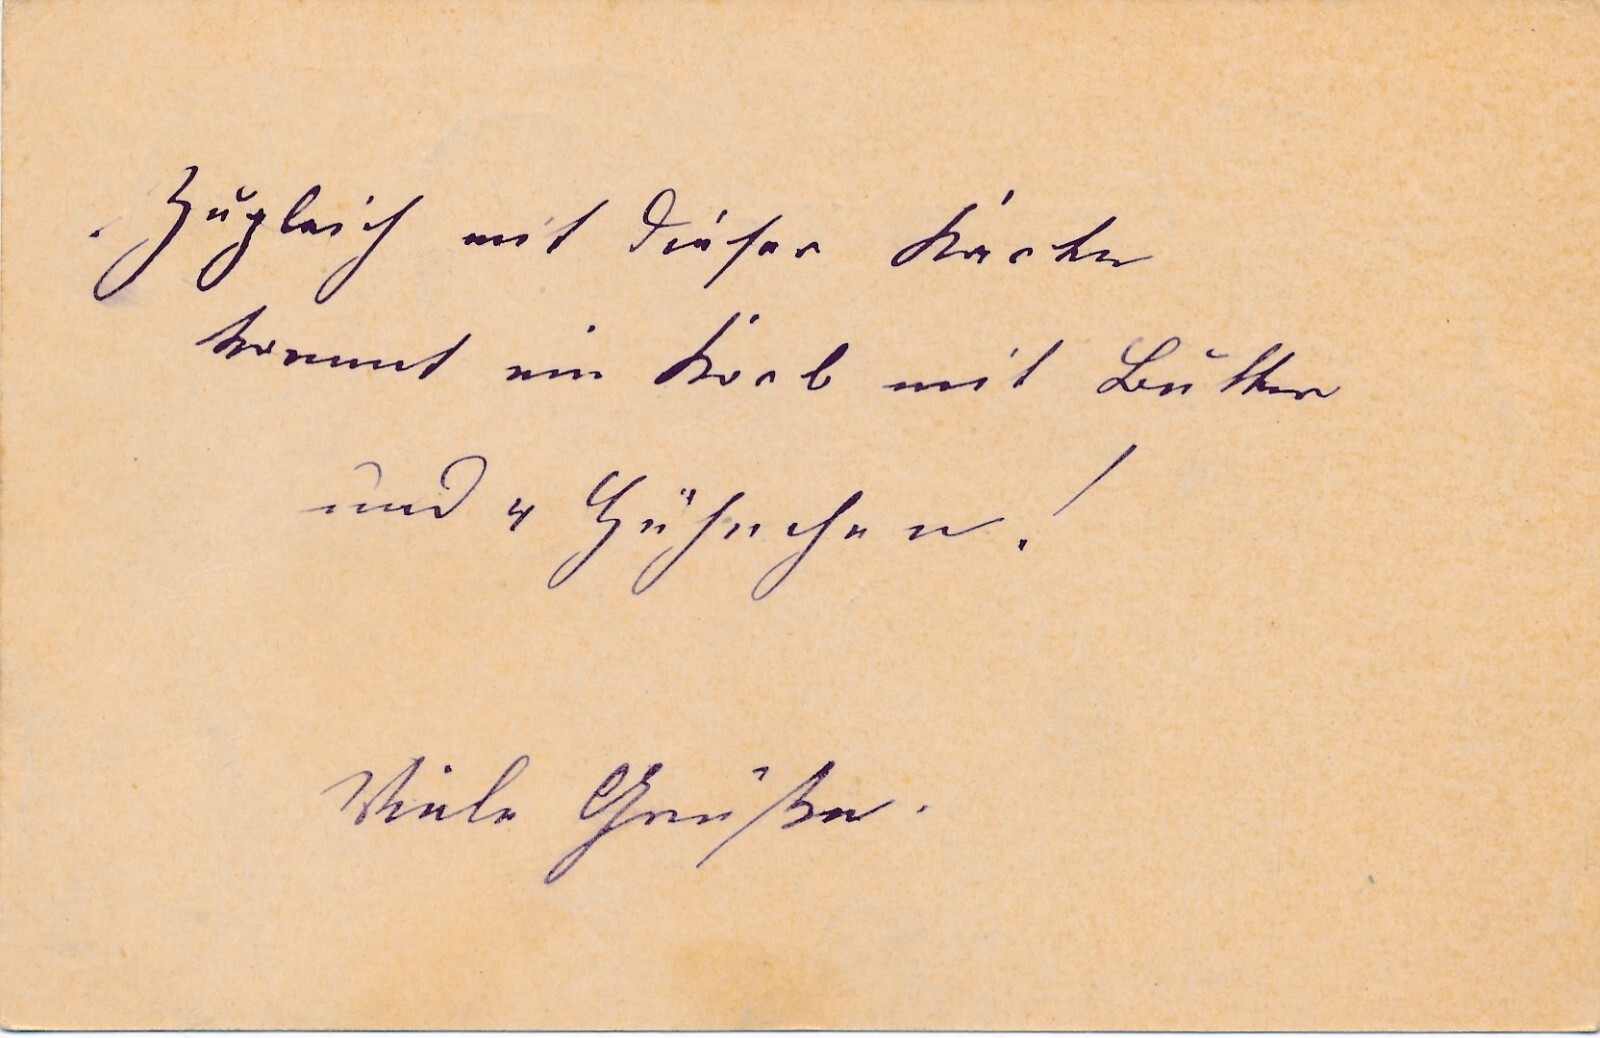 Zugleich mit dieser Karte
kommt ein Korb mit Butter
und 4 Hühnchen!
Viele Grüße.